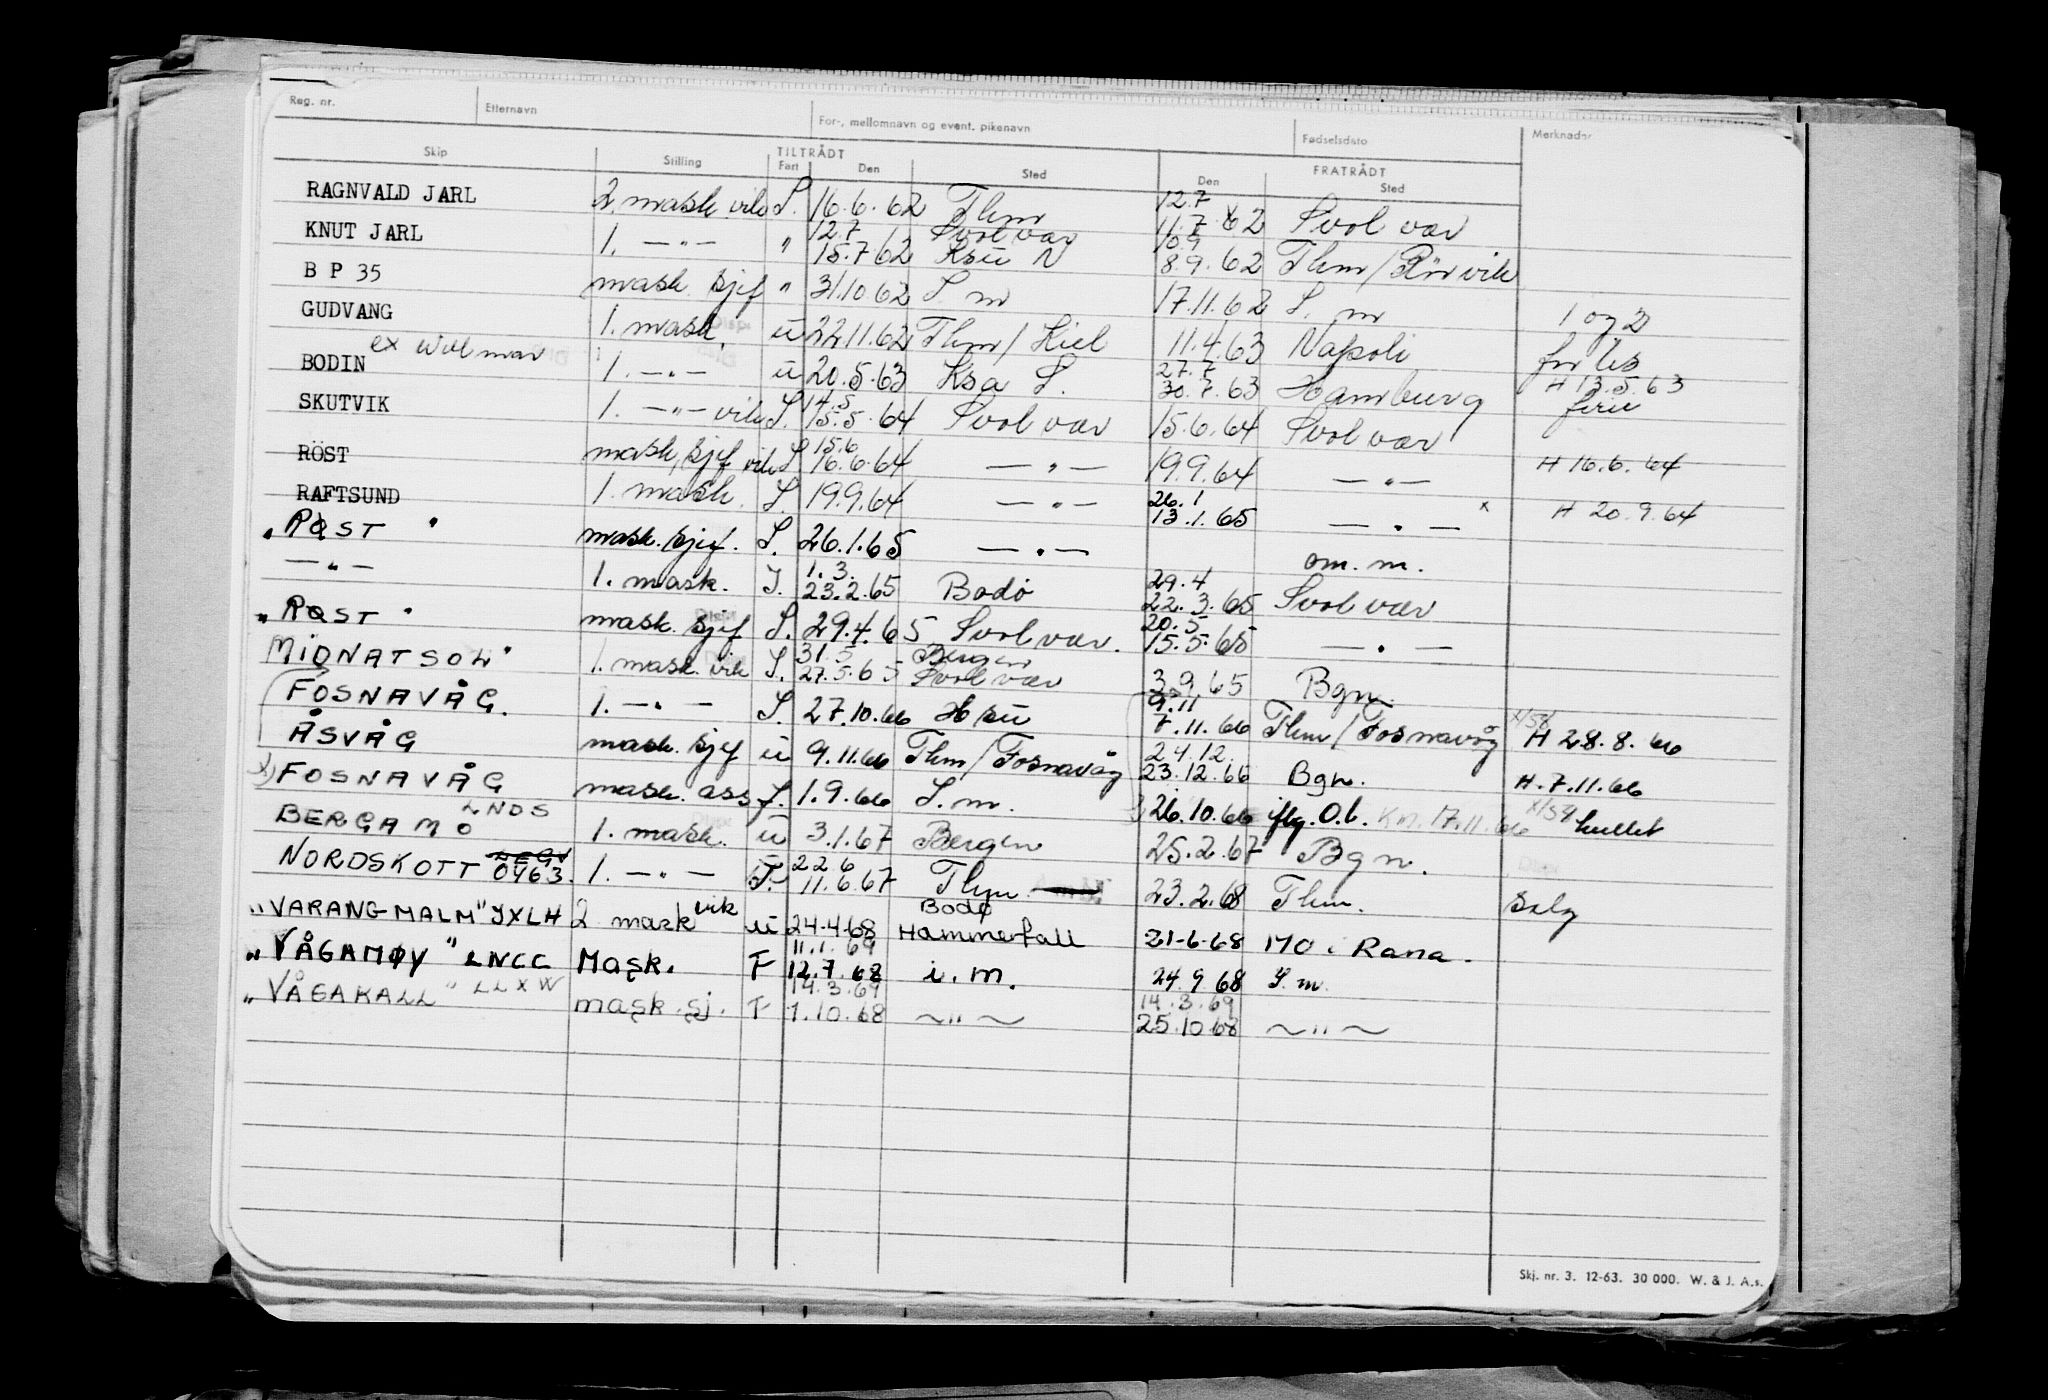 Reg. nr. Etternavn For-, mellomnavn og event. pikenavn Fødselsdato Merknader
Skip Stilling TILTRÅDT Fart Den Sted FRATRÅDT Den Sted
12.7
RAGNVALD JARL 2. mask. vik S. 16.6.62 Thm 11.7.62 Svolvær
12.7 Svolvær 10.9
KNUT JARL 1. —"— " 15.7.62 Ksu N 8.9.62 Thm/Rörvik
B P 35 mask. sjef " 31.10.62 S. m 17.11.62 S. m
GUDVANG 1. mask. u 22.11.62 Thm/Kiel 11.4.63 Napoli 1 og 2
ex Wolmar 27.7 fm
BODIN 1. —"— u 20.5.63 Ksa S. 30.7.63 Hamburg H 13.5.63
14.5 ferie
SKUTVIK 1. —"— vik S. 15.5.64 Svolvær 15.6.64 Svolvær
15.6
RÖST mask. sjef vik S 16.6.64 —"— 19.9.64 —"— H 16.6.64
26.1
RAFTSUND 1. mask. S. 19.9.64 —"— 13.1.65 —"— x H 20.9.64
"RØST" mask. sjef. S. 26.1.65 —"— om. m.
1.3. 29.4
—"— 1. mask. S. 23.2.65 Bodö 22.3.65 Svolvær
20.5
"RØST" mask. sjef S. 29.4.65 Svolvær. 15.5.65 —"—
31.5 Bergen
MIDNATSOL" 1. mask. vik S. 27.5.65 Svolvær 3.9.65 Bgn.
9.11
FOSNAVÅG. 1. —"— S. 27.10.66 Hsu 7.11.66 Thm/Fosnavåg H 28.8.66
24.12.
ÅSVÅG mask. sjef u 9.11.66 Thm/Fosnavåg 23.12.66 Bgn. H. 7.11.66
FOSNAVÅG mask. ass S. 1.9.66 S. m. 26.10.66 iflg. O.b. Kn. 17.11.66 hullet
LNDS
BERGAMO 1. mask. u 3.1.67 Bergen 25.2.67 Bgn.
LEGV 22.6
NORDSKOTT OYG3. 1. —"— F. 11.6.67 Thm. 23.2.68 Thm. Salg
vik Bodø
"VARANGMALM" JXLH 2 mask u 24-4-68 Hammerfall 21-6-68 MO i Rana.
11.1.69
"VÅGAMØY" LNCC Mask. F 12.7.68 i.m. 24.9.68 S.m.
14.3.69 14.3.69
"VÅGAKALL" LLXW mask. sj. F 1.10.68 ~"~ 25.10.68 ~"~
Skj. nr. 3. 12-63. 30 000. W. & J. A.s.